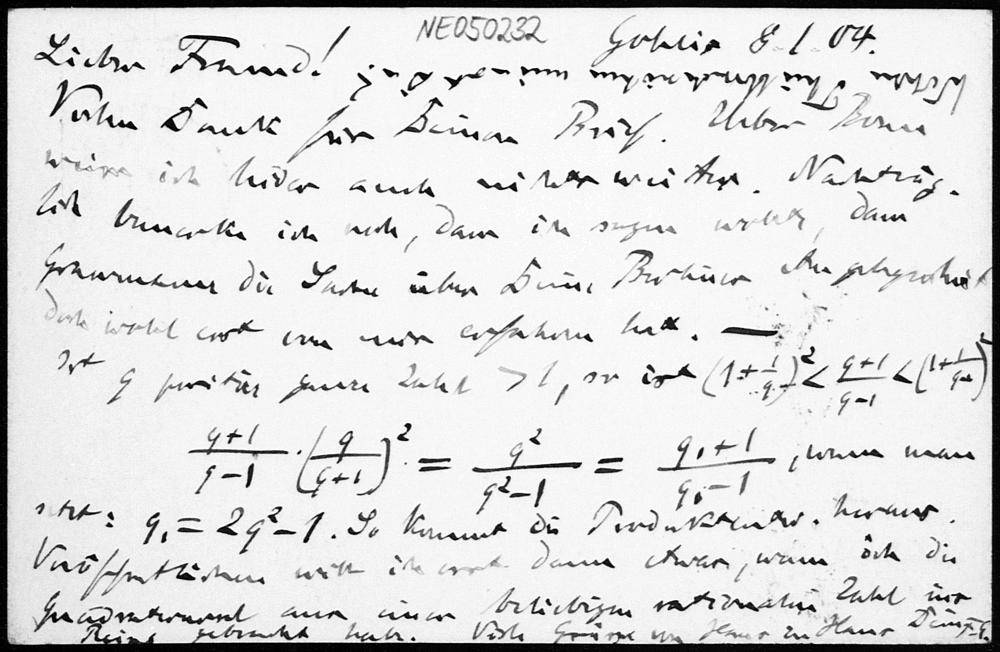 NE050232
Gohlis 8. 1. 04.
Lieber Freund!
Vielen Dank für Deinen Brief. Ueber
weiss ich leider auch nichts weiter. Nachträg-
lich bemerke ich noch, dass ich sagen wollte, dass
die Sache über Deine
doch wohl erst von mir erfahren hat. —
Ist q positive ganze Zahl > 1, so ist (1+1/q)² < (q+1)/(q-1) < (1+1/(q-1))²
(q+1)/(q-1) · (q/(q+1))² = q²/(q²-1) = (q₁+1)/(q₁-1), wenn man
setzt: q₁ = 2q²-1. So kommt die Produktentw. heraus.
Veröffentlichen will ich erst dann etwas, wenn ich die
Quadratwurzel aus einer beliebigen rationalen Zahl ins
Reine gebracht habe. Viele Grüsse von Haus zu Haus Dein F. E.